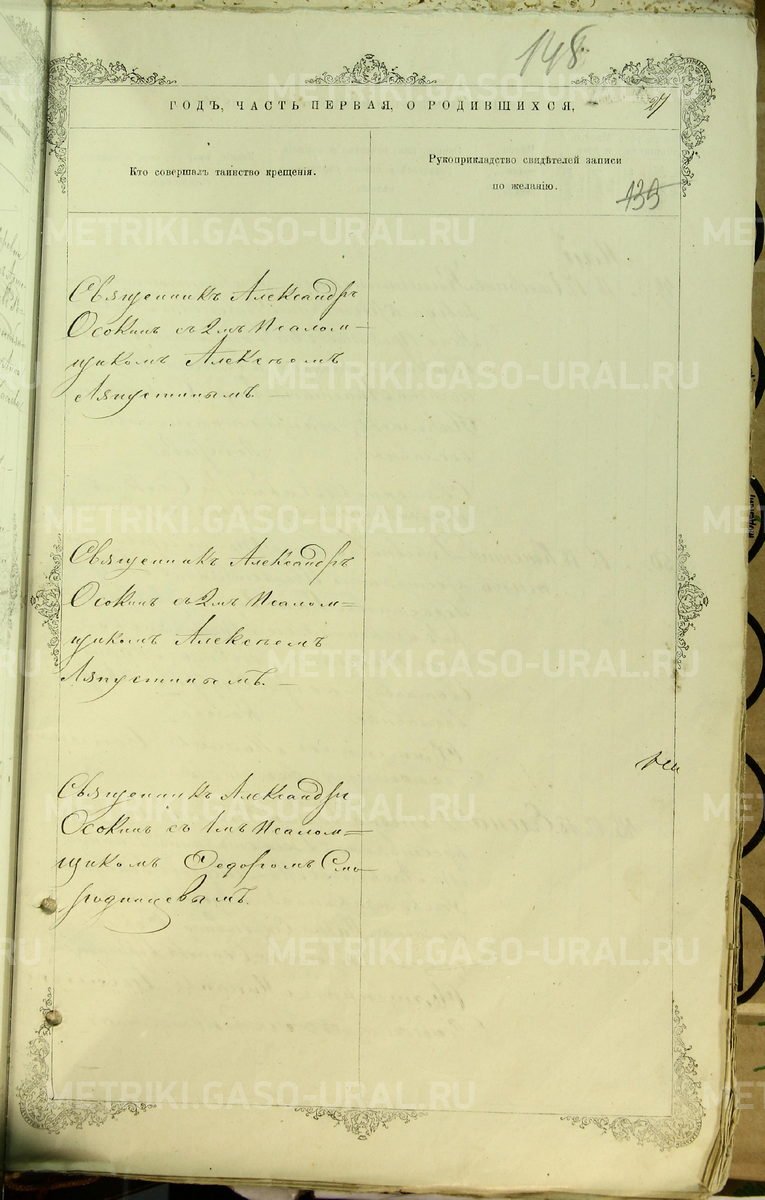 148
ГОДЪ, ЧАСТЬ ПЕРВАЯ, О РОДИВШИХСЯ.
27
Кто совершалъ таинство крещенія.
Рукоприкладство свидѣтелей записи
по желанію.
135
Священникъ Александръ
Осокинъ съ 2мъ Псалом-
щикомъ Алексѣемъ
Ляпустинымъ
Священникъ Александръ
Осокинъ съ 2мъ Псалом-
щикомъ Алексѣемъ
Ляпустинымъ.
Священникъ Александръ
Осокинъ со 1мъ Псалом-
щикомъ Ѳедоромъ Смо-
родинцевымъ.
METRIKI.GASO-URAL.RU